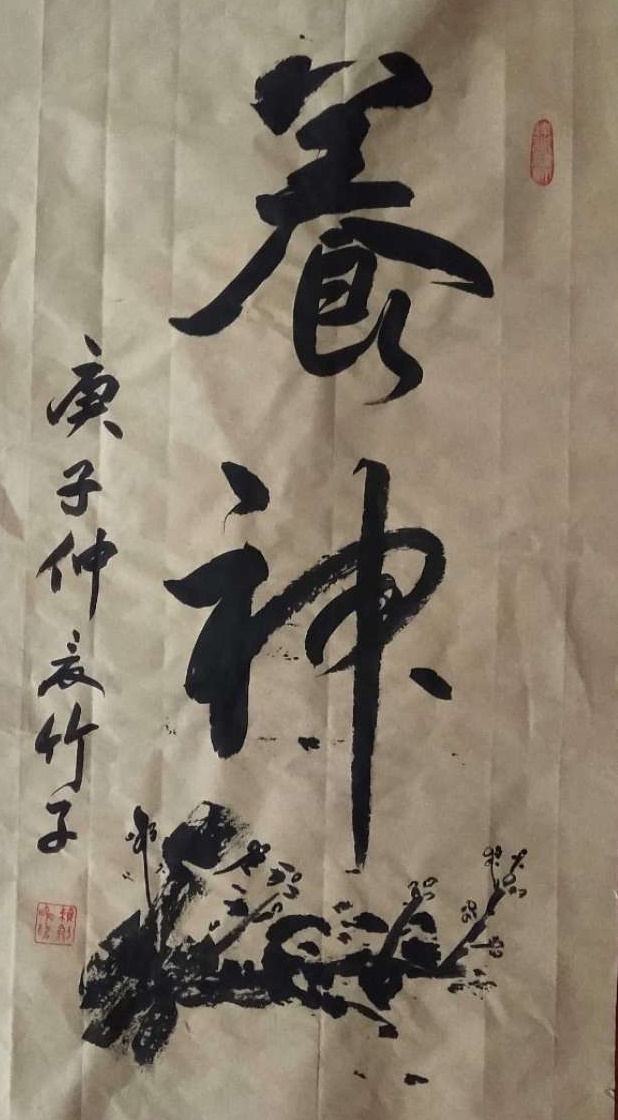 養神
庚子仲袁竹子